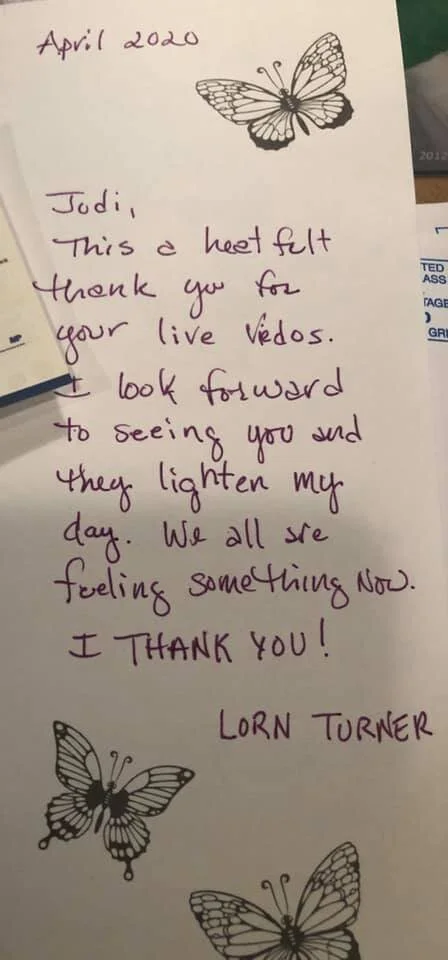 April 2020
2012
Jodi,
This a heet felt
thank you for
your live Vedos.
I look forward
to seeing you and
they lighten my
day. We all are
feeling something Now.
I THANK YOU!
LORN TURNER
TED
ASS
TAGE
D
GRE
MP